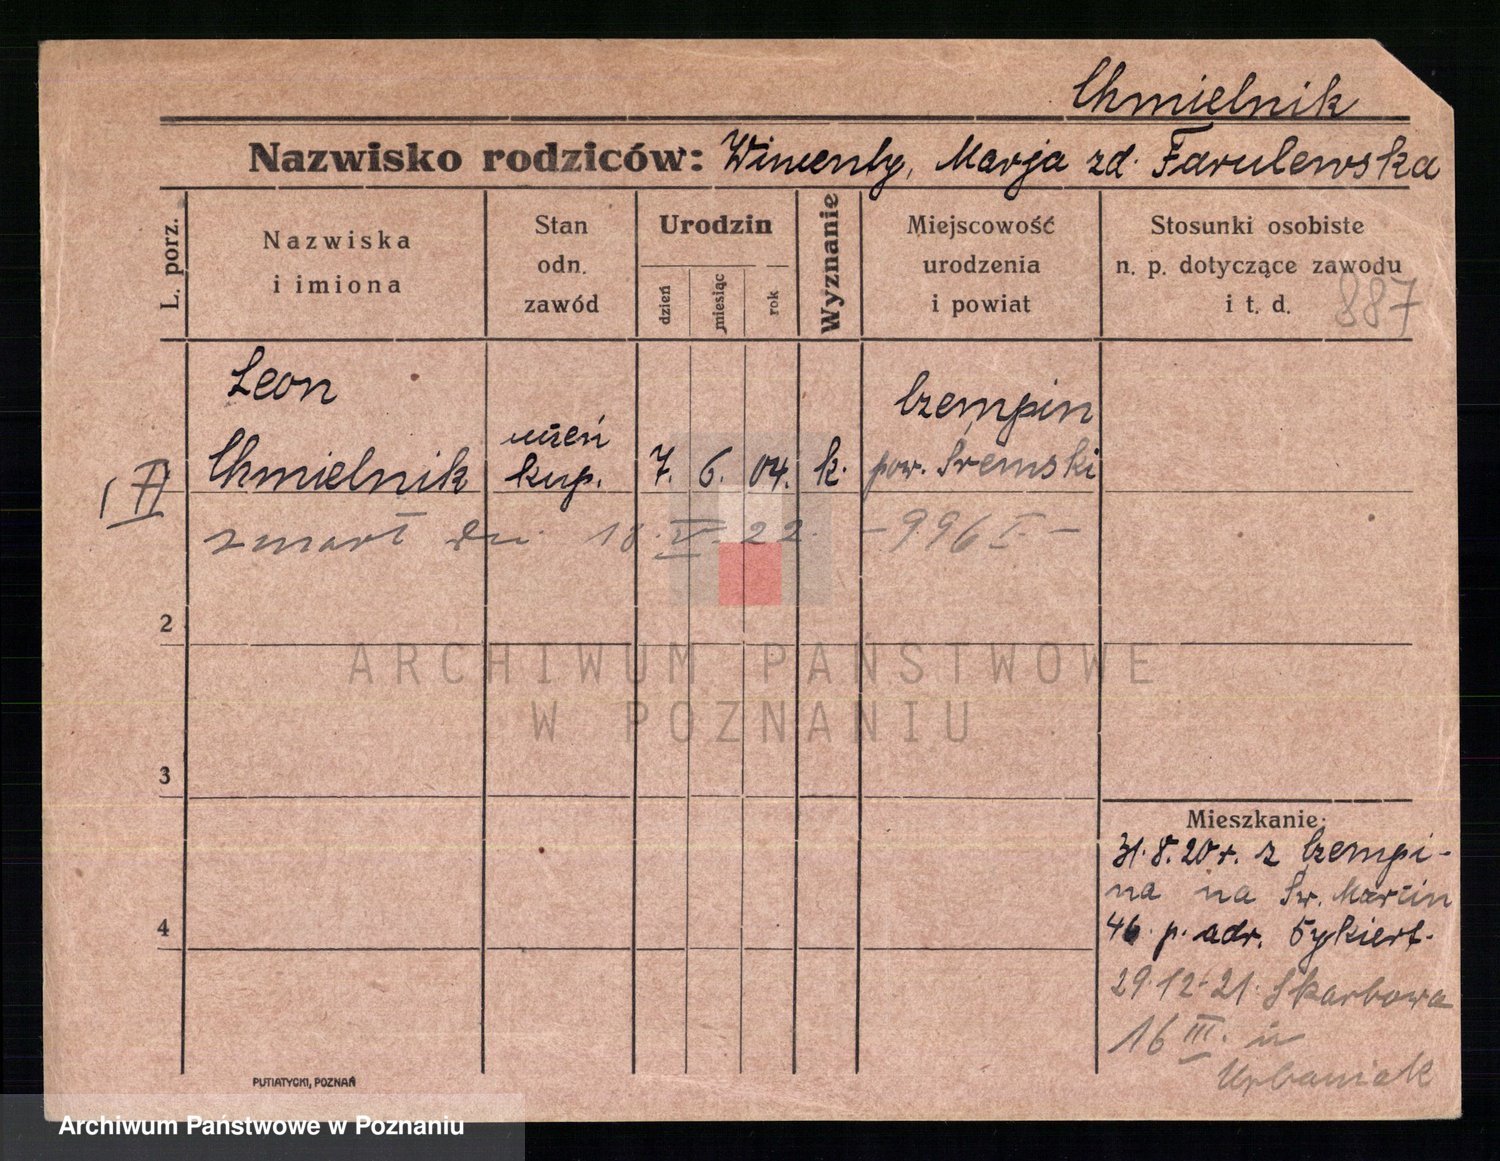 Chmielnik
Nazwisko rodziców: Wincenty, Marja zd. Farulewska
L. porz.
Nazwiska
i imiona
Stan
odn.
zawód
Urodzin
dzień
miesiąc
rok
Wyznanie
Miejscowość
urodzenia
i powiat
Stosunki osobiste
n. p. dotyczące zawodu
i t. d.
887
Leon
Chmielnik
uczeń
kup.
7. 6. 04. k.
Czempin
pow. Śremski
zmarł dn. 18. V. 22. - 996 I. -
2
ARCHIWUM PAŃSTWOWE
W POZNANIU
3
4
Mieszkanie:
31.8.20 r. z Czempi-
na na Św. Marcin
46 p. adr.
29.12.21. Skarbowa
16 III. u
Urbaniak
PUTIATYCKI, POZNAŃ
Archiwum Państwowe w Poznaniu